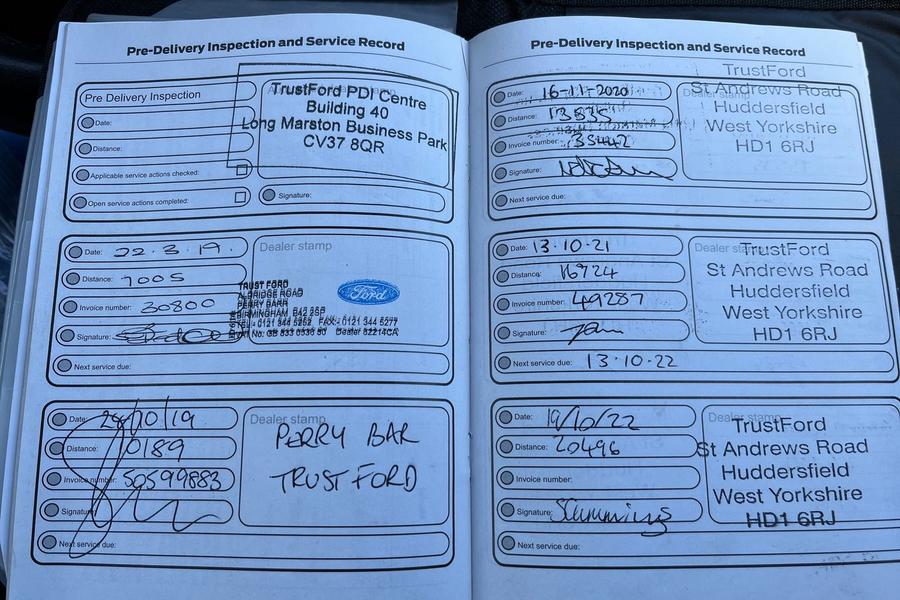 Pre-Delivery Inspection and Service Record
Pre Delivery Inspection
Date:
Distance:
Applicable service actions checked:
Open service actions completed:
Signature:
TrustFord PDI Centre
Building 40
Long Marston Business Park
CV37 8QR
Date: 22.3.19.
Distance: 7005
Invoice number: 30800
Signature:
Next service due:
Dealer stamp
TRUST FORD
ALDRIDGE ROAD
PERRY BARR
BIRMINGHAM, B42 2SP
TEL: 0121 344 FAX: 0121 344 5277
Ford
Date: 29/10/19
Distance: 10189
Invoice number: 50599883
Signature:
Next service due:
Dealer stamp
PERRY BAR
TRUST FORD
Pre-Delivery Inspection and Service Record
Date: 16-11-2020
Distance: 13535
Invoice number: 35442
Signature:
Next service due:
Dealer stamp
TrustFord
St Andrews Road
Huddersfield
West Yorkshire
HD1 6RJ
Date: 13.10.21
Distance: 16924
Invoice number: 49287
Signature:
Next service due: 13.10.22
Dealer stamp
TrustFord
St Andrews Road
Huddersfield
West Yorkshire
HD1 6RJ
Date: 19/10/22
Distance: 20496
Invoice number:
Signature:
Next service due:
Dealer stamp
TrustFord
St Andrews Road
Huddersfield
West Yorkshire
HD1 6RJ